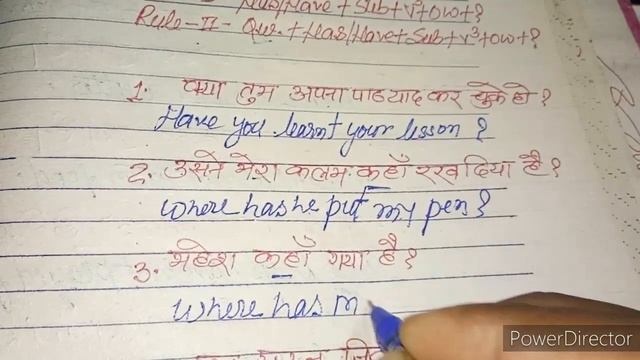 Has/Have + Sub + V³ + Ow + ?
Rule-II- Que. + Has/Have + Sub + V³ + Ow + ?
1. क्या तुम अपना पाठ याद कर चुके हो ?
Have you learnt your lesson ?
2. उसने मेरा कलम कहाँ रख दिया है ?
where has he put my pen ?
3. महेश कहाँ गया है ?
where has m
PowerDirector